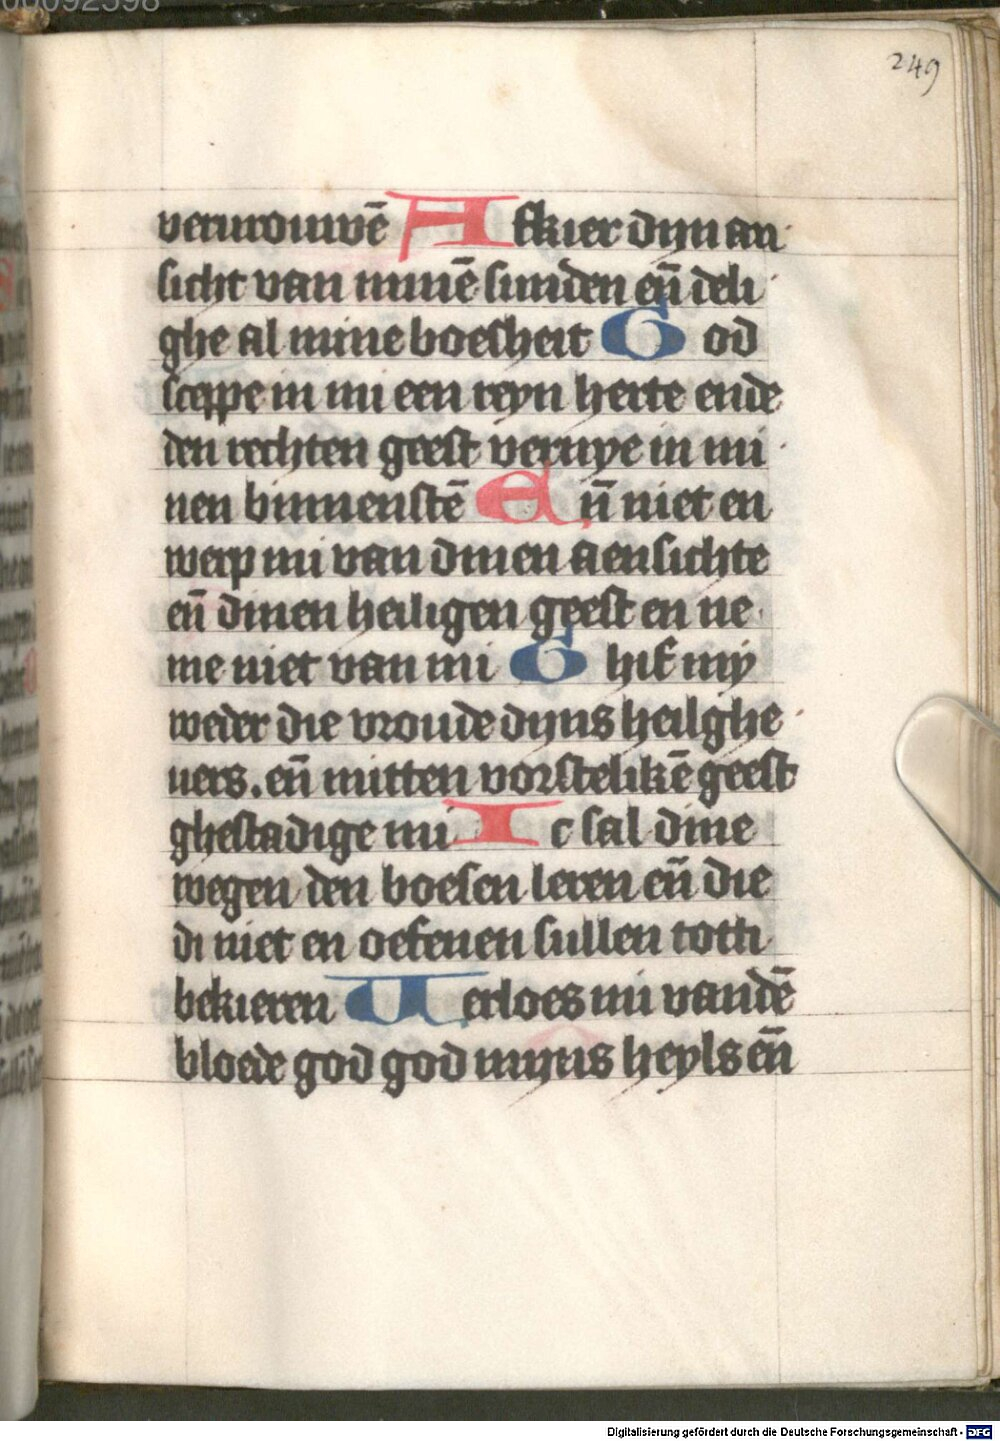 00092598
249
vervrouwē Afkier dyn an
sicht van minē sunden en̄ deli
ghe al mine boesheit God
sceppe in mi een reyn herte ende
den rechten geest vernye in mi
nen binnenstē En̄ niet en
werp mi van dinen aensichte
en̄ dinen heiligen geest en ne
me niet van mi Ghif my
weder die vroude dyns heilghe
uers. en̄ mitten vorstelikē geest
ghestadige mi Ic sal dine
wegen den boesen leren en̄ die
di niet en oefenen sullen totti
bekieren Verloes mi vandē
bloede god god myns heyls en̄
Digitalisierung gefördert durch die Deutsche Forschungsgemeinschaft - DFG